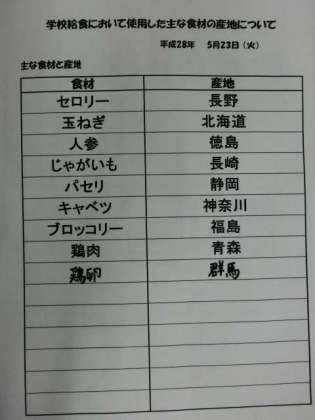 学校給食において使用した主な食材の産地について
平成28年 5月23日（火）
主な食材と産地
食材 産地
セロリー 長野
玉ねぎ 北海道
人参 徳島
じゃがいも 長崎
パセリ 静岡
キャベツ 神奈川
ブロッコリー 福島
鶏肉 青森
鶏卵 群馬